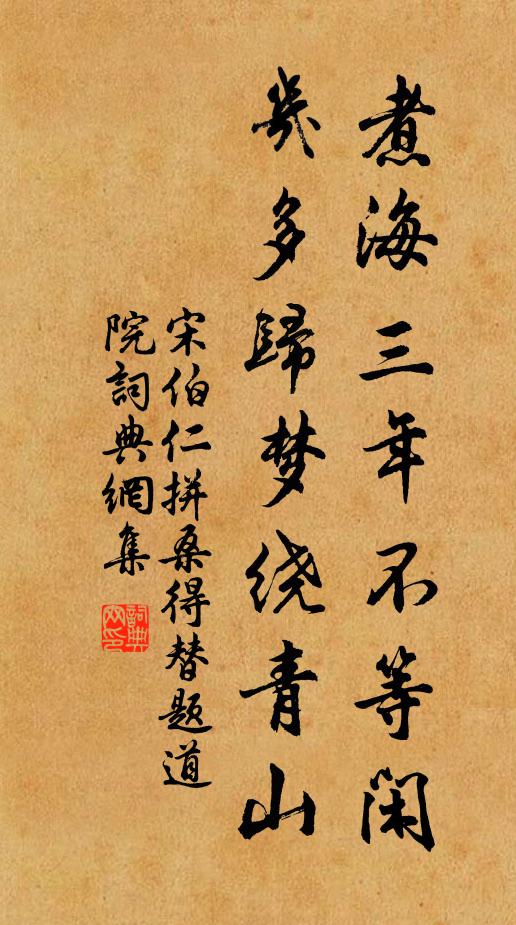 煮海三年不等闲
幾多歸梦绕青山
宋伯仁拼桑得替题道
院詞典網集
詞典
网印